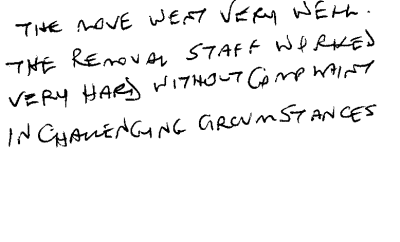 THE MOVE WENT VERY WELL.
THE REMOVAL STAFF WORKED
VERY HARD WITHOUT COMPLAINT
IN CHALLENGING CIRCUMSTANCES